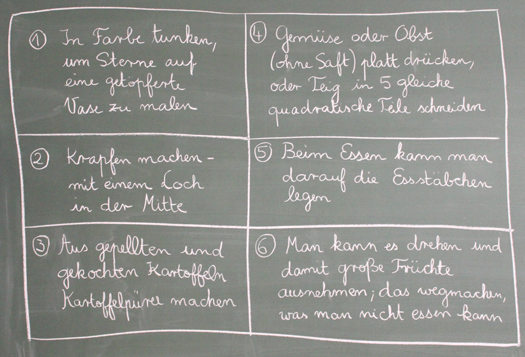 ① In Farbe tunken,
um Sterne auf
eine getöpferte
Vase zu malen
② Krapfen machen –
mit einem Loch
in der Mitte
③ Aus gepellten und
gekochten Kartoffeln
Kartoffelpüree machen
④ Gemüse oder Obst
(ohne Saft) platt drücken,
oder Teig in 5 gleiche
quadratische Teile schneiden
⑤ Beim Essen kann man
darauf die Essstäbchen
legen
⑥ Man kann es drehen und
damit große Früchte
ausnehmen; das wegmachen,
was man nicht essen kann